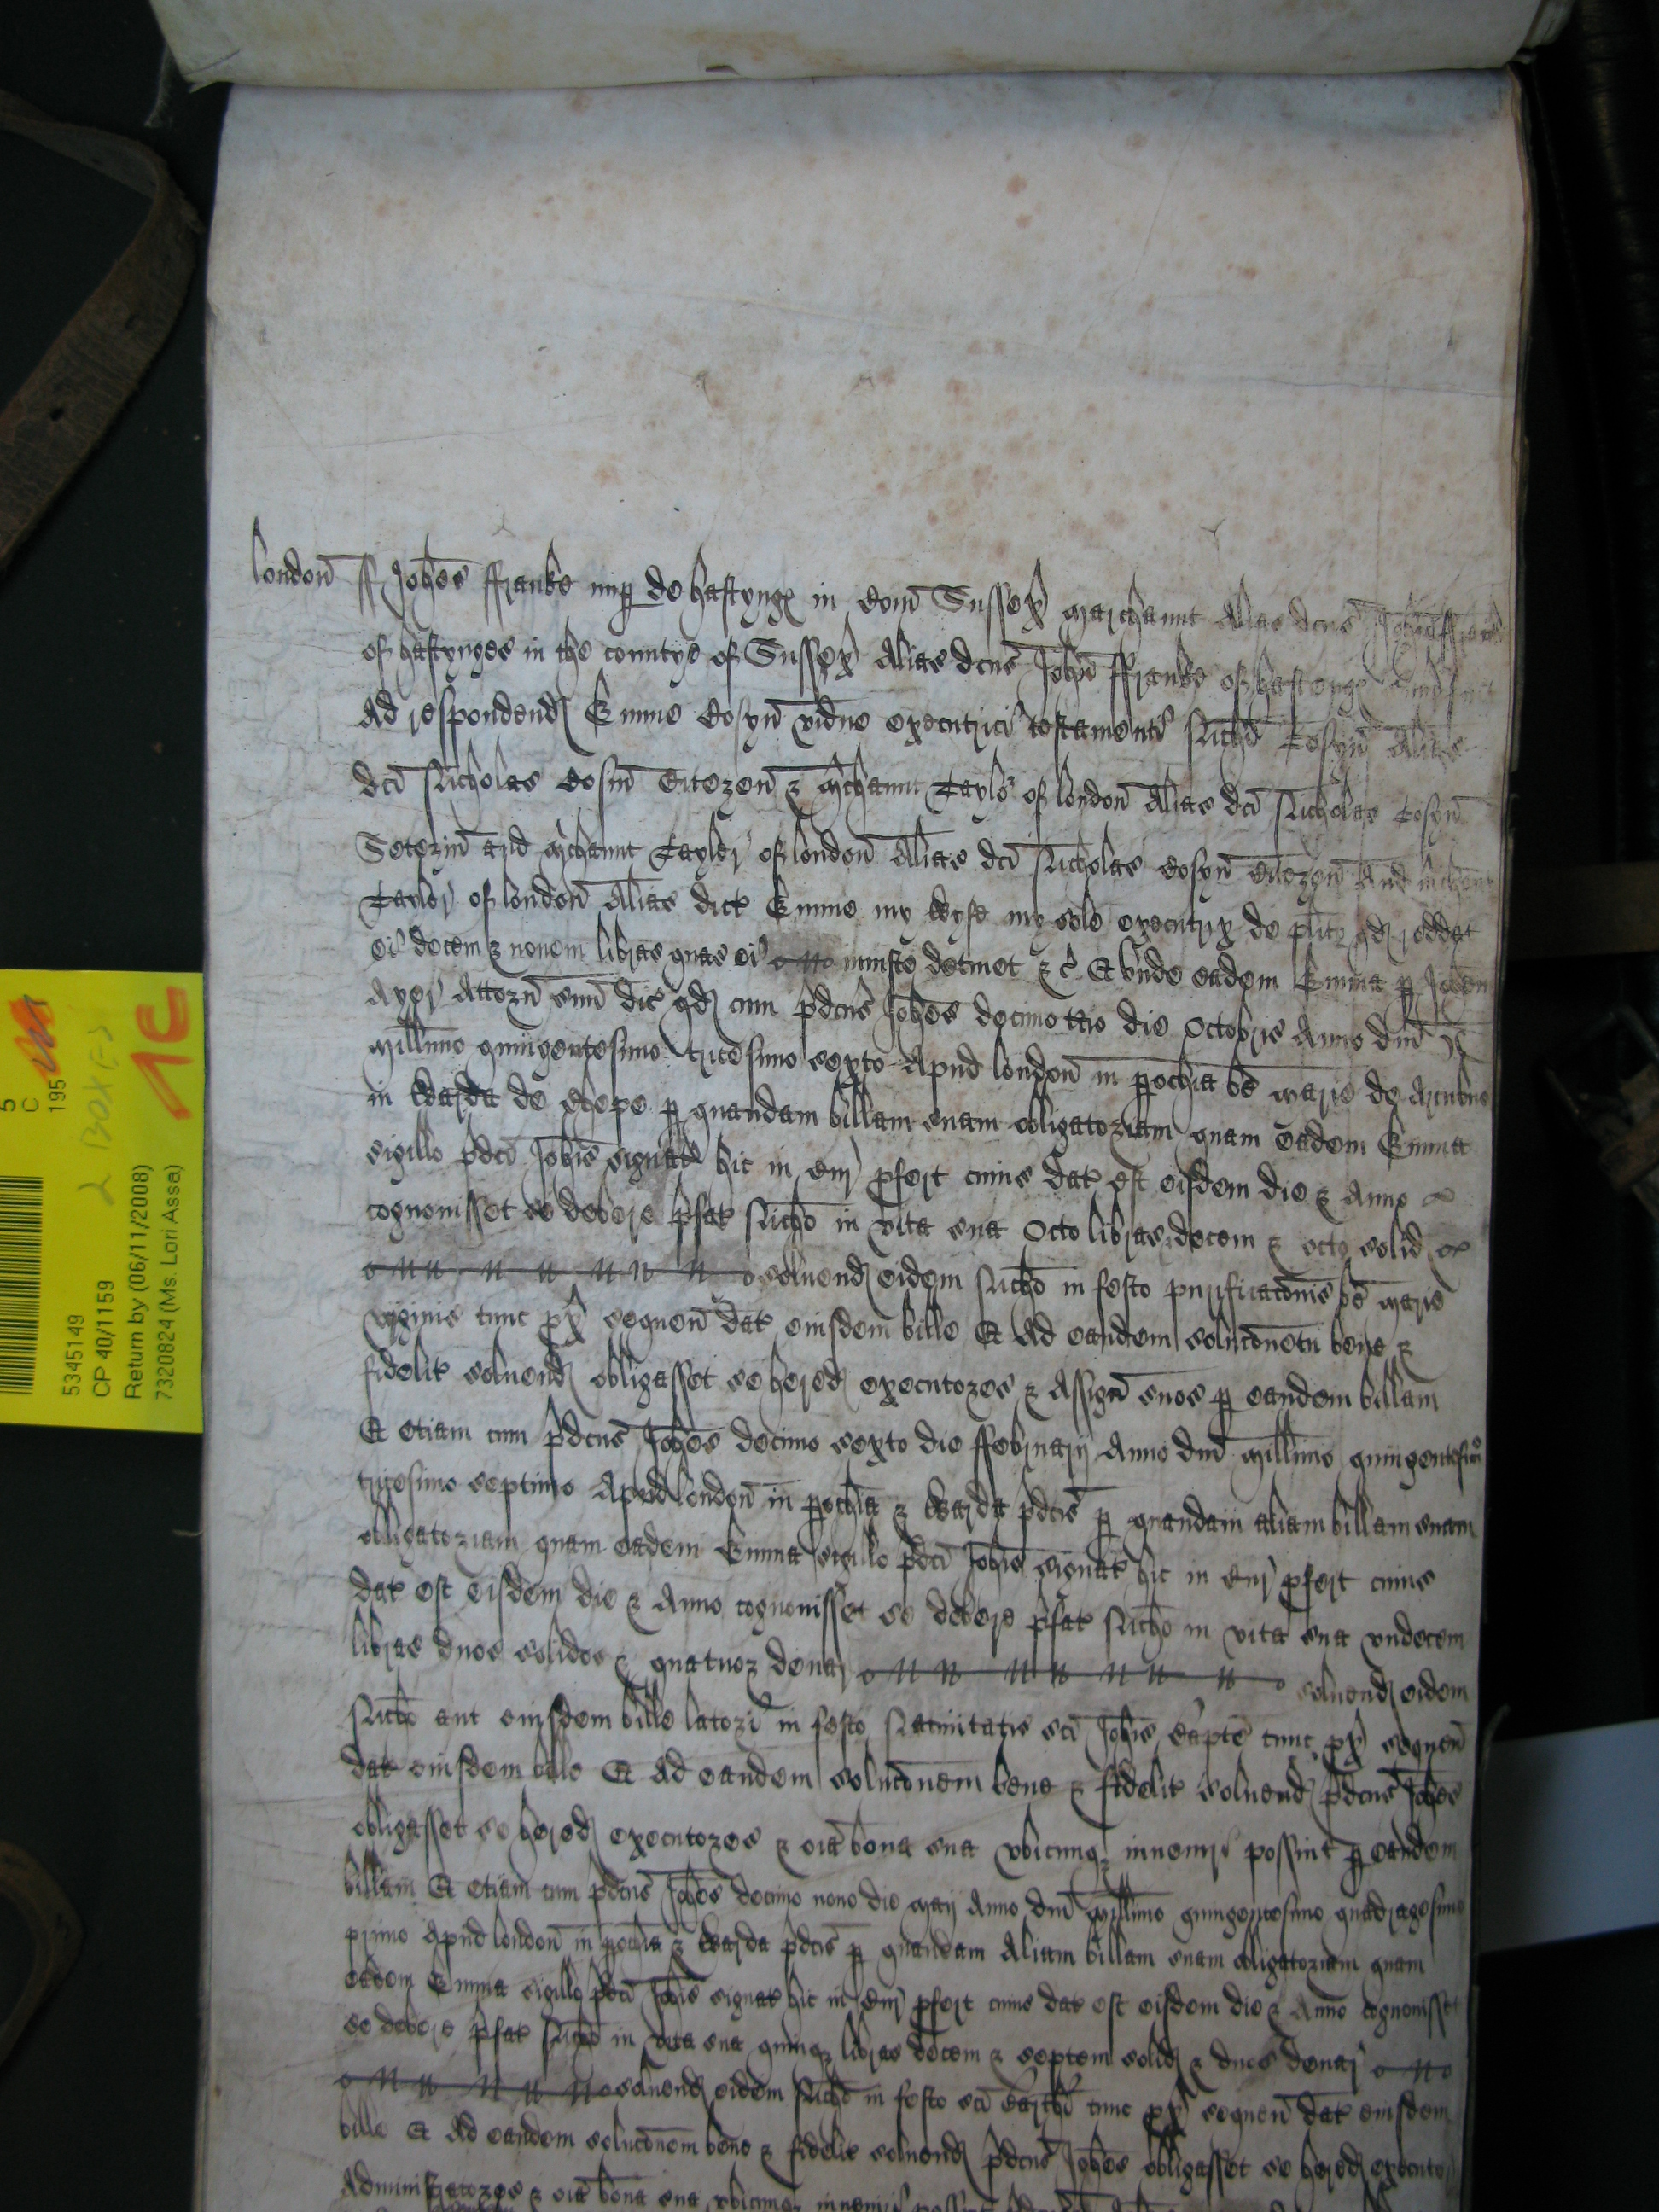 londoñ ss Johēs ffranke nup de hastyngℯ in Com̄ Sussex marchaunt Alias dcūs Johēs ffranke
of hastynges in the countye of Sussex Alias dcūs John̄ ffranke of hastyngℯ
Ad respondend Emme Cosyn̄ vidue executrici testamenti Nichi Cosyn̄ Alias
dcī Nicholas Cosin̄ Citezen̄ & mchaunt Taylor of london̄ Alias dcī Nicholas Cosyn̄
Setezin̄ and mchaunt Tayler of london̄ Alias dcī Nicholas Cosyn̄ Citezen̄ And mchaunt
Tayler of london̄ Alias dict Emme my Wyfe my sole executryx de plito qd reddat
ei decem & novem libras quas ei iniuste detinet &c Et vnde eadem Emma p Johem
Ayer Attorn̄ suu dic qd cum pdcūs Johēs decimo tcio die Octobris Anno dnī
Millimo quingentesimo tricesimo sexto Apud london̄ in pochia be marie de Arcubus
in Warda de Chepe p quandam billam suam obligatoriam quam eadem Emma
sigillo pdcī Johis signat hic in Cur pfert cuius dat est eisdem die & Anno
cognouisset se debere pfat Nicho in vita sua Octo libras decem & octo solid
soluend eidem Nicho in festo purificacōnis be marie
virginis tunc px sequen̄ dat eiusdem bille Et Ad eandem solucōnem bene &
fidelit soluend obligasset se hered executores & Assign̄ suos p eandem billam
Et etiam cum pdcūs Johēs decimo sexto die ffebruarij Anno dnī Millimo quingentesimo
tricesimo septimo Apud london̄ in pochia & Warda pdcis p quandam aliam billam suam
obligatoriam quam eadem Emma sigillo pdcī Johis signat hic in Cur pfert cuius
dat est eisdem die & Anno cognouisset se debere pfat Nicho in vita sua vndecem
libras duos solidos & quatuor denar soluend eidem
Nicho aut eiusdem bille latori in festo Natiuitatis sci Johis Bapte tunc px sequen̄
dat eiusdem bille Et Ad eandem solucōnem bene & fidelit soluend pdcūs Johēs
obligasset se hered executores & oīa bona sua vbicumq inueniri possint p eandem
billam Et etiam cum pdcūs Johēs decimo nono die maij Anno dnī Millimo quingentesimo quadragesimo
primo Apud london̄ in pochia & Warda pdcis p quandam Aliam billam suam obligatoriam quam
eadem Emma sigillo pdcī Johis signat hic in Cur pfert cuius dat est eisdem die & Anno cognouisset
se debere pfat Nicho in vita sua quinq libras decem & septem solid & duos denar
soluend eidem Nicho in festo sci Barthi tunc px sequen̄ dat eiusdem
bille Et Ad eandem solucōnem bene & fidelit soluend pdcūs Johēs obligasset se hered executor
Administratores & oīa bona sua vbicumq inueniri possint
5
C
195
2 BOX(ES)
1C
5345149
CP 40/1159
Return by (06/11/2008)
7320824 (Ms. Lori Assa)